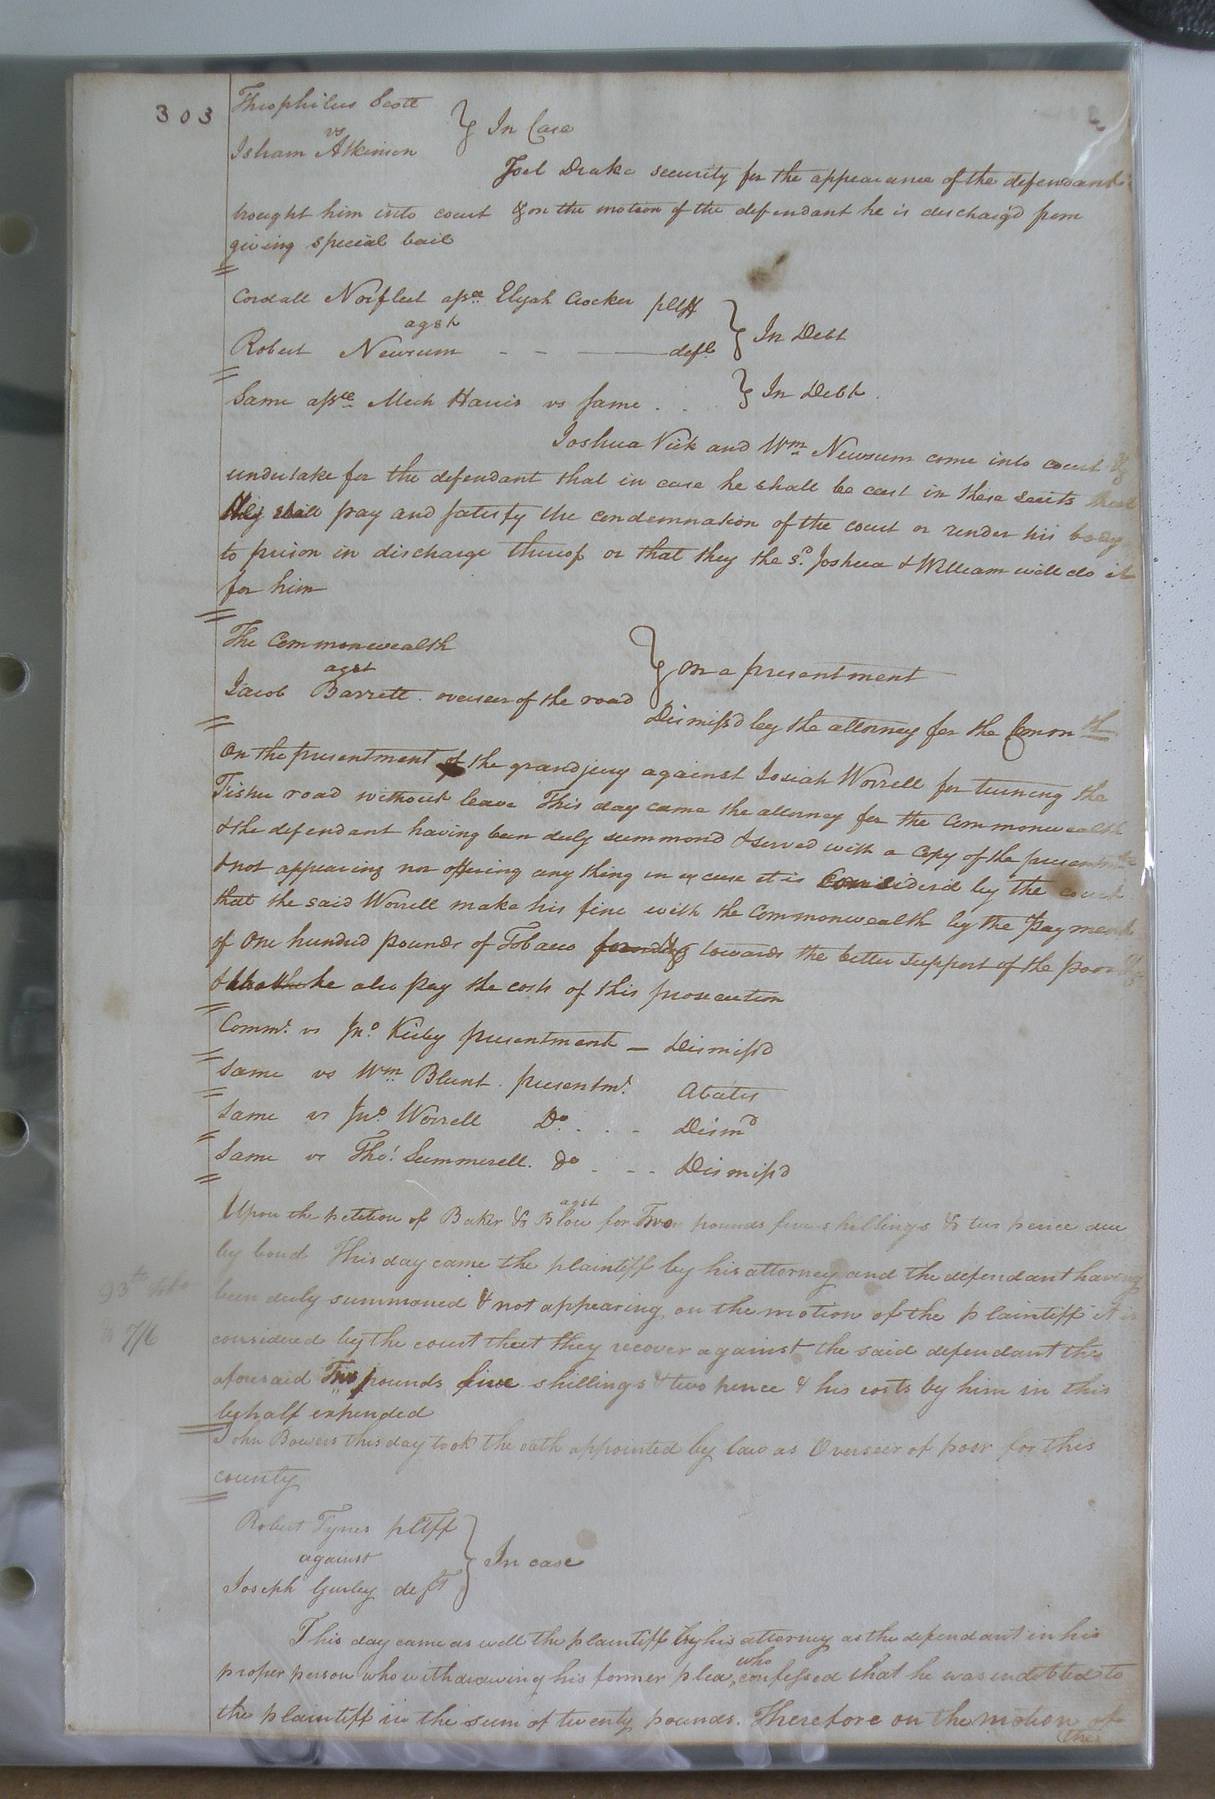 303
Theophilus Scott
vs
Isham Atkinson } In Case
Joel Drake security for the appearance of the defendant
brought him into court & on the motion of the defendant he is discharg'd from
giving special bail
Cordall Norfleet assee Elijah Crocker pltff
agst
Robert Newsum - - deft } In Debt
Same assee Mich Harris vs same . . } In Debt .
Joshua Vick and Wm Newsum come into court &
undertake for the defendant that in case he shall be cast in these suits that
he shall pay and satisfy the condemnation of the court or render his body
to prison in discharge thereof or that they the sd Joshua & William will do it
for him
The Commonwealth
agst
Jacob Barrett overseer of the road } On a presentment
Dismiss'd by the attorney for the Comon th
On the presentment of the grandjury against Josiah Worrell for turning the
road without leave This day came the attorney for the Commonwealth
& the defendant having been duly summond & served with a copy of the presentmt
& not appearing nor offering any thing in excuse it is considerd by the court
that the said Worrell make his fine with the Commonwealth by the Payment
of One hundred pounds of Tobacco towards the better support of the poor &
& that he also pay the costs of this prosecution
Commt vs Jno Kirby presentment — Dismiss'd
Same vs Wm Blunt . presentmt Abates
Same vs Jno Worrell Do . . - Dismd
Same vs Thos Summerell . do . - - Dismiss'd
Upon the petition of Baker & agst Blow for Two pounds five shillings & two pence due
by bond This day came the plaintiff by his attorney and the defendant having
been duly summoned & not appearing on the motion of the plaintiff it is
93
7/6
considered by the court that they recover against the said defendant the
aforesaid Two pounds five shillings & two pence & his costs by him in this
behalf expended
John Bowers this day took the oath appointed by law as Overseer of poor for this
county
Robert Tynes pltff
against
Joseph Gurley deft } In case
This day came as well the plaintiff by his attorney as the defendant in his
proper person who withdrawing his former plea, who confessed that he was indebted to
the plaintiff in the sum of twenty pounds. Therefore on the motion of
the